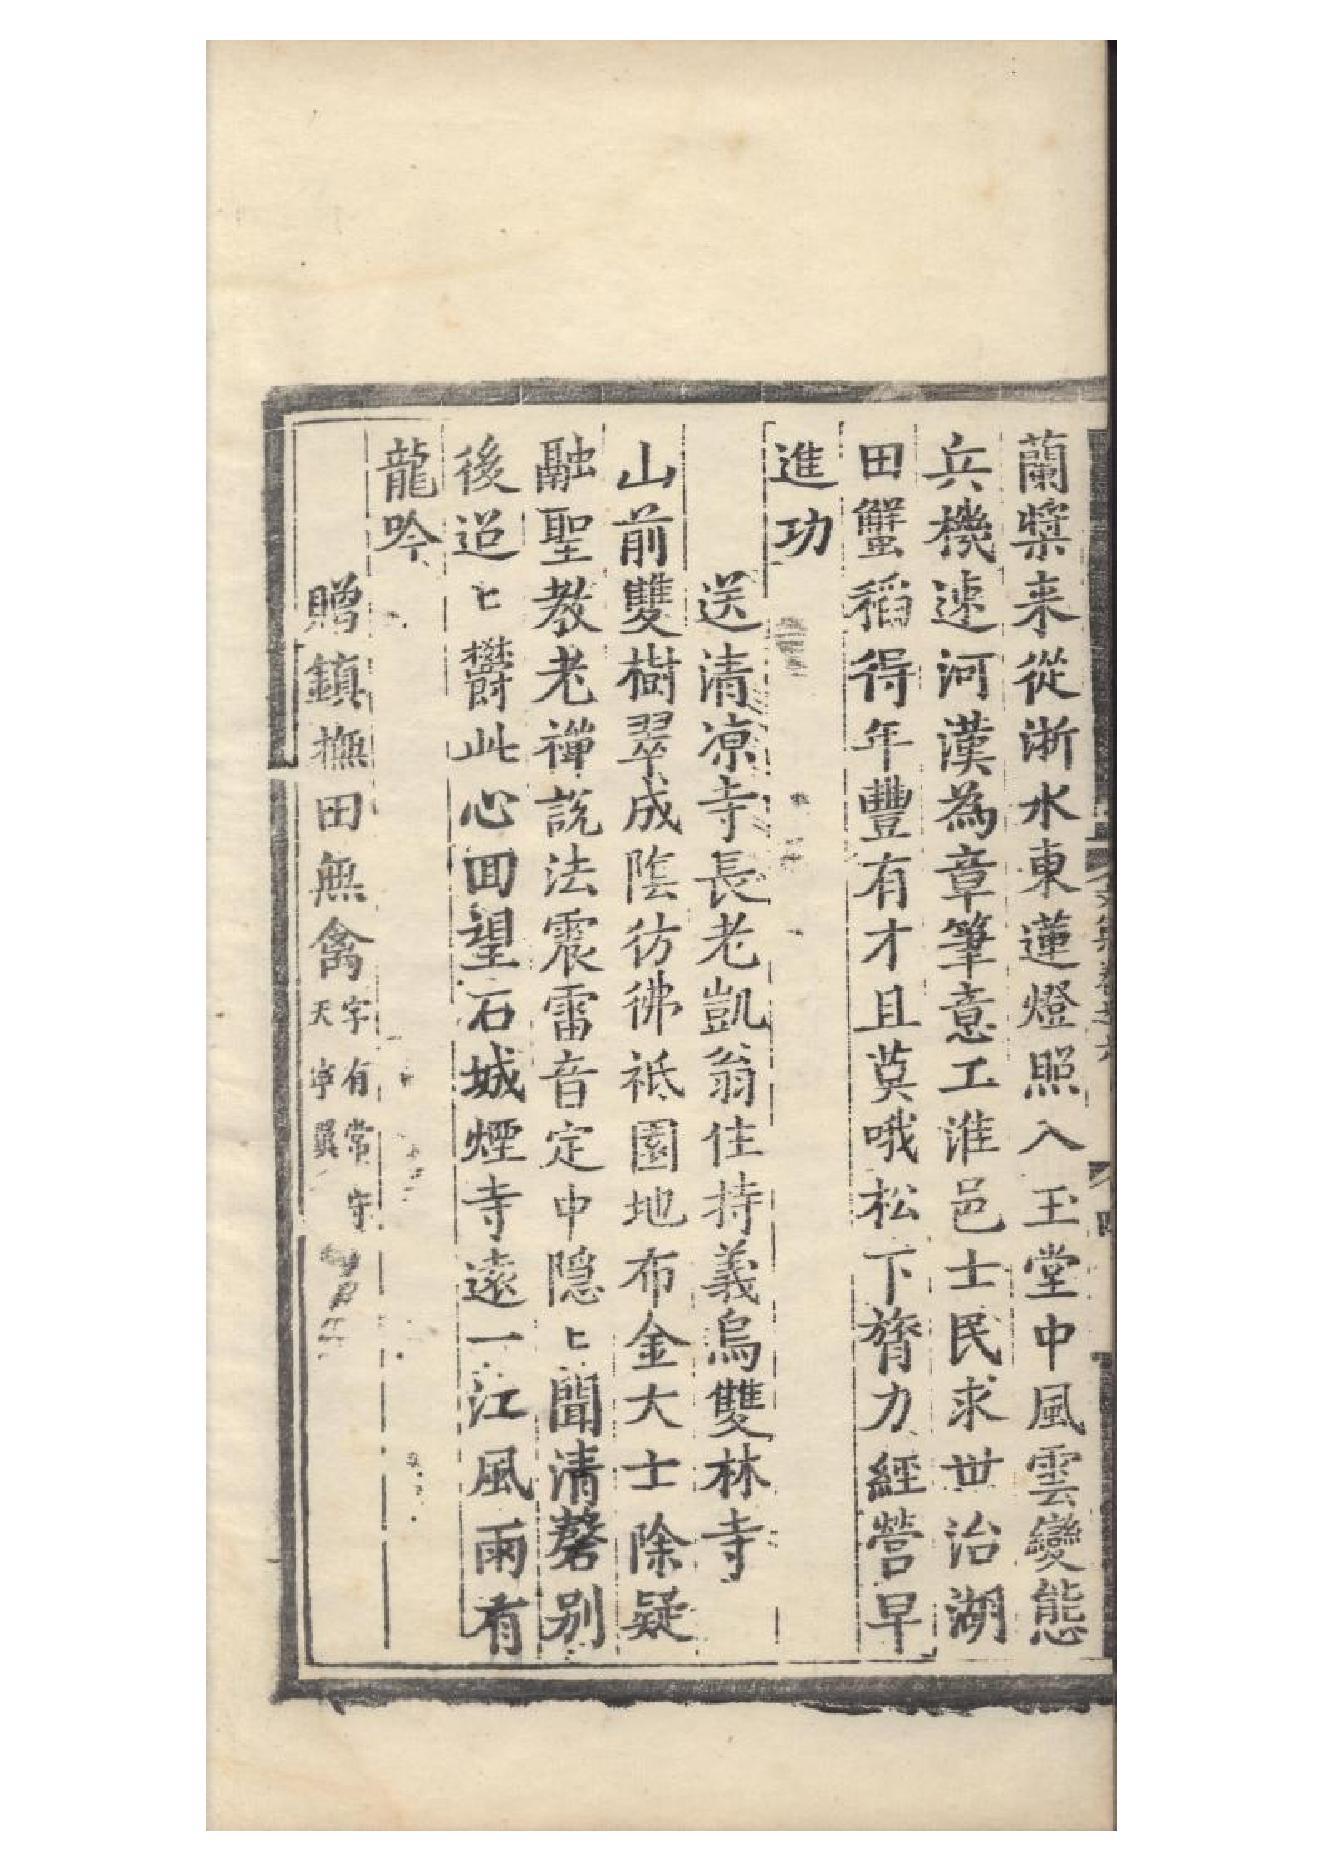 蘭槳来從浙水東蓮燈照入玉堂中風雲變態
兵機速河漢為章筆意工淮邑士民求世治湖
田蟹稻得年豐有才且莫哦松下膂力經營早
進功
送清凉寺長老凱翁住持義烏雙林寺
山前雙樹翠成隂彷彿祗園地布金大士除疑
融聖教老禅説法震雷音定中隠〻聞清磬别
後迢〻欝此心囬望石城煙寺遠一江風雨有
龍吟
贈鎮撫田無禽
字有常守
天寧翼